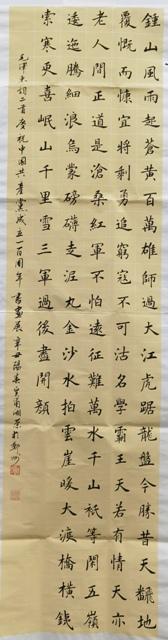 鍾山風雨起蒼黃百萬雄師過大江虎踞龍盤今勝昔天翻地
覆慨而慷宜將剩勇追窮寇不可沽名學霸王天若有情天亦
老人間正道是滄桑紅軍不怕遠征難萬水千山衹等閑五嶺
逶迤騰細浪烏蒙磅礴走泥丸金沙水拍雲崖暖大渡橋橫鐵
索寒更喜岷山千里雪三軍過後盡開顏
毛澤東詞二首慶祝中國共產黨成立一百周年書畫展辛丑陽春於鄭州